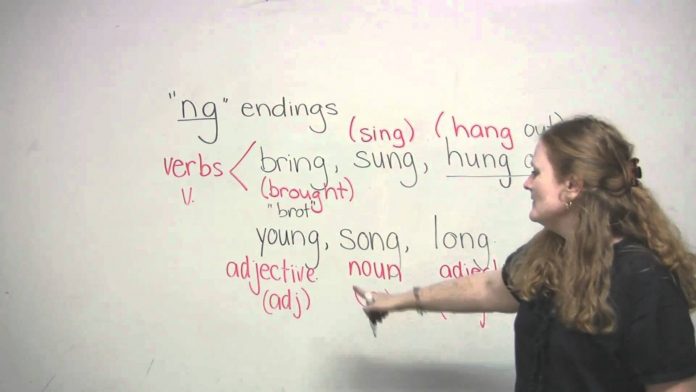 "ng" endings
(sing) (hang
verbs < bring, sung, hung
v. (brought)
"brot"
young, song, long
adjective noun
(adj)